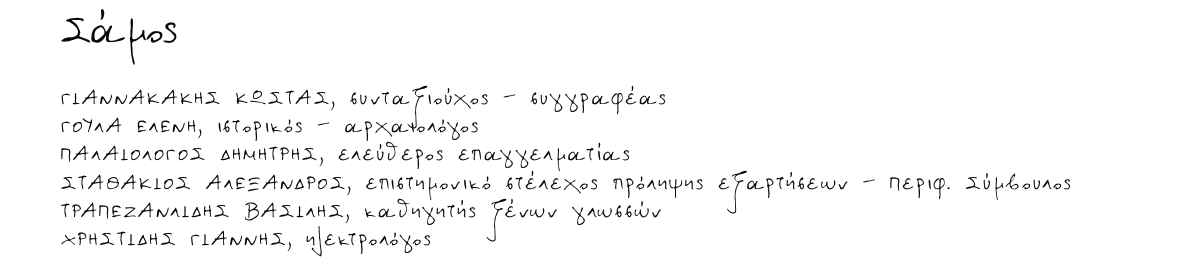 Σάμος
ΓΙΑΝΝΑΚΑΚΗΣ ΚΩΣΤΑΣ, συνταξιούχος – συγγραφέας
ΓΟΥΛΑ ΕΛΕΝΗ, ιστορικός – αρχαιολόγος
ΠΑΛΑΙΟΛΟΓΟΣ ΔΗΜΗΤΡΗΣ, ελεύθερος επαγγελματίας
ΣΤΑΘΑΚΙΟΣ ΑΛΕΞΑΝΔΡΟΣ, επιστημονικό στέλεχος πρόληψης εξαρτήσεων – περιφ. Σύμβουλος
ΤΡΑΠΕΖΑΝΛΙΔΗΣ ΒΑΣΙΛΗΣ, καθηγητής ξένων γλωσσών
ΧΡΗΣΤΙΔΗΣ ΓΙΑΝΝΗΣ, ηλεκτρολόγος